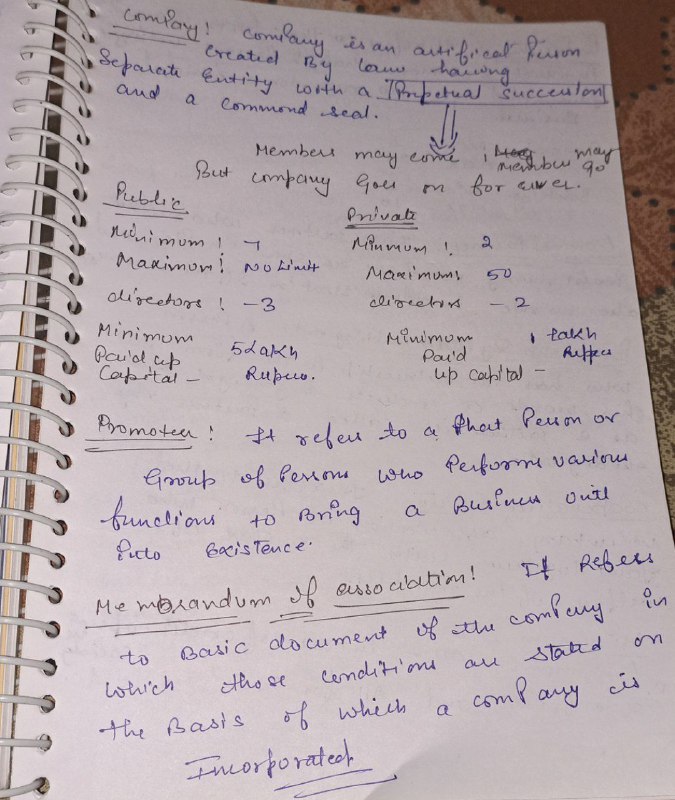 Company! Company is an artifical Person
Created By law having
Separate Entity with a Perpetual succession
and a commond seal.
Members may come, Members may go
But company Goes on for ever.
Public
Private
Minimum! 7
Minimum! 2
Maximum! No Limit
Maximum! 50
directors! - 3
directors - 2
Minimum
Paid up
Capital - 5 Lakh
Rupees.
Minimum
Paid
up capital - 1 lakh
Ruppes
Promoter! It refers to a that Person or
Group of Persons who Performs various
functions to Bring a Business unit
into Existence.
Memorandum of association! It Refers
to Basic document of the company in
which those conditions are stated on
the Basis of which a company is
Incorporated